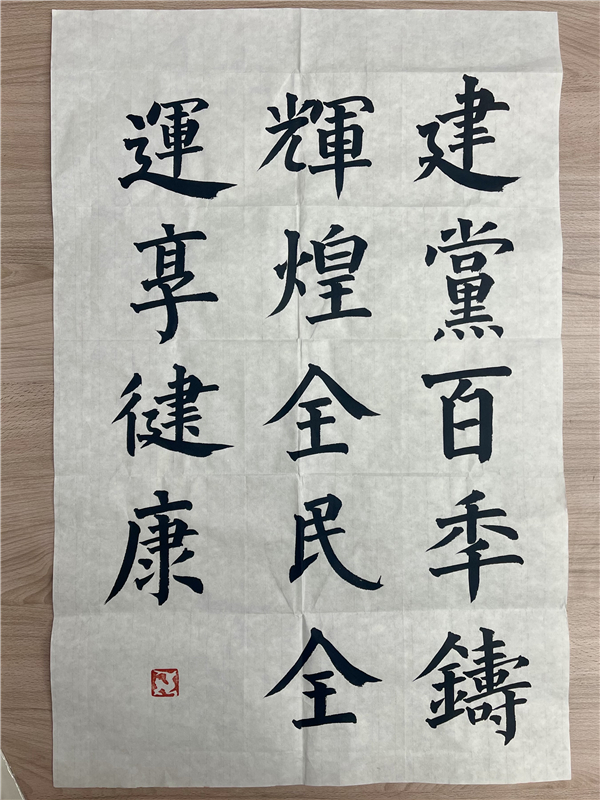 建黨百年鑄
輝煌全民全
運享健康